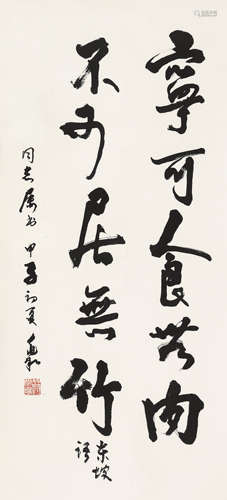 寧可食無肉
不可居無竹
东坡語
同志屬書 甲子初夏